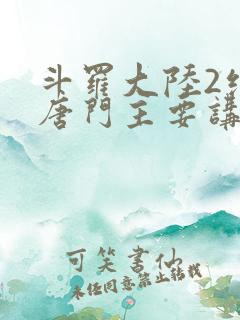 斗羅大陸2
唐門主要講
可笑書仙
未经同意禁止转载